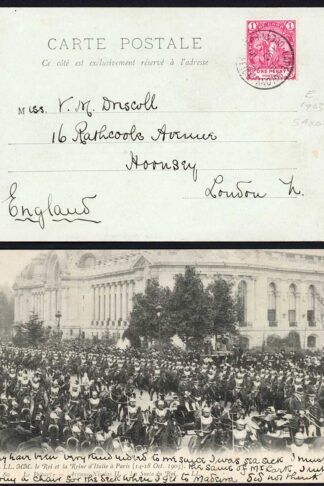 CARTE POSTALE
Ce côté est exclusivement réservé à l'adresse
1 1
ONE PENNY
Miss. V. M. Driscoll
16 Rathcoole Avenue
Hornsey
London N.
England
LL. MM. le Roi et la Reine d'Italie à Paris (14-18 Oct. 1903)
have been very kind indeed to me since I was sea sick I must
the same of Mr Cart, I must
a chair for the deck when I get to Madeira Did not think